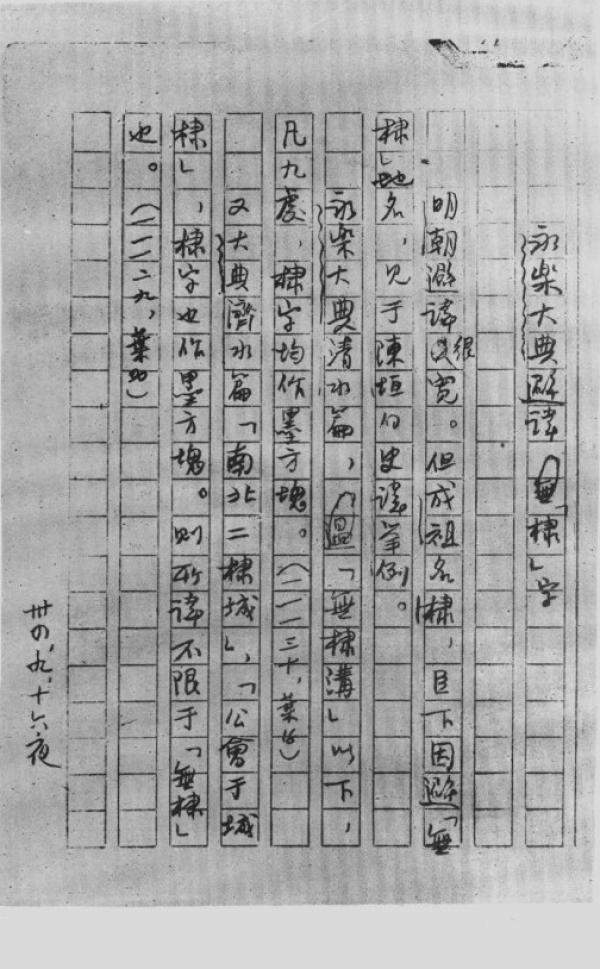 永樂大典避諱「棣」字
明朝避諱很寬。但成祖名棣,臣下因避「無
棣」地名,見于陳垣的史諱舉例。
永樂大典清水篇,「無棣溝」以下,
凡九處,棣字均作墨方塊。(一一一三十,葉)
又大典濟水篇「南北二棣城」,「公會于城
棣」,棣字也作墨方塊。则所諱不限于「無棣」
也。(一一一二九,葉)
卅四,九,十六夜